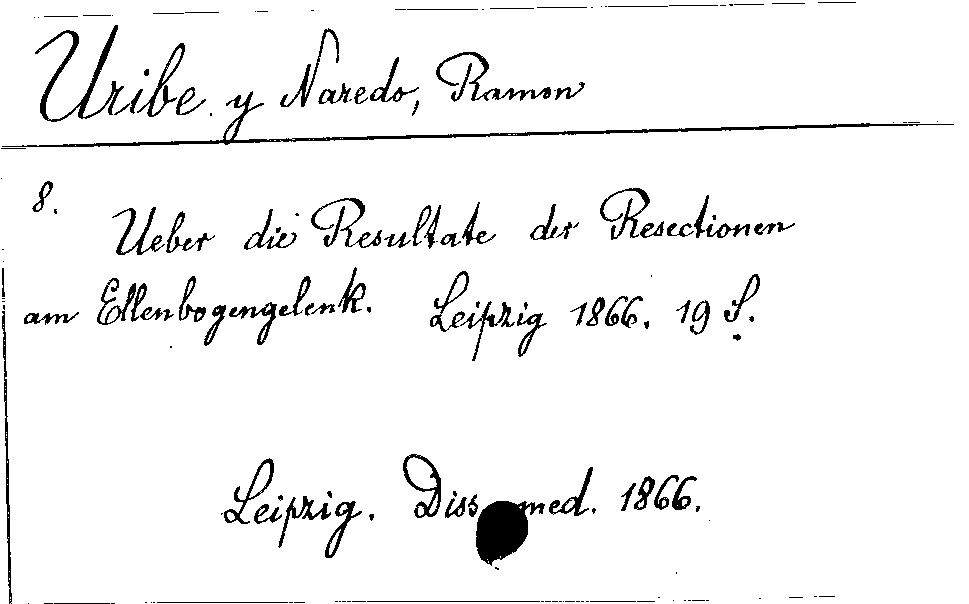 Uribe y Naredo, Ramon
8.
Ueber die Resultate der Resectionen
am Ellenbogengelenk. Leipzig 1866. 19 S.
Leipzig. Diss. med. 1866.